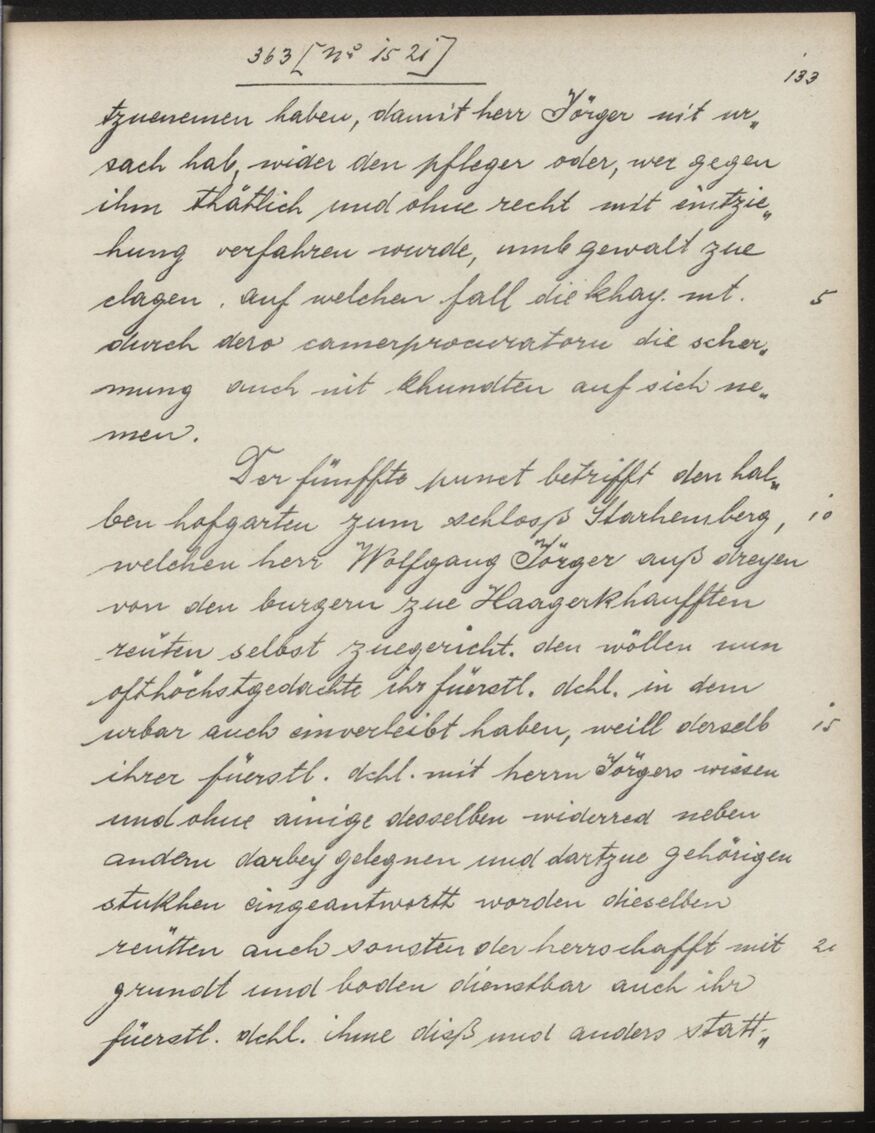 363 [ No 15 21 ]
133
tzuenemen haben, damit herr Jörger nit ur„
sach hab, wider den pfleger oder, wer gegen
ihm thätlich und ohne recht mit eintzie„
hung verfahren wurde, umb gewalt zue
clagen. auf welchen fall die khay. mt. 5
durch dero camerprocuratorn die scher„
mung auch nit khundten auf sich ne„
men.
Der fünffte punct betrifft den hal„
ben hofgarten zum schlosß Starhemberg, 10
welchen herr Wolfgang Jörger auß dreyen
von den burgern zue Haagerkhaufften
reüten selbst zuegericht. den wöllen nun
ofthöchstgedachte ihr füerstl. dchl. in dem
urbar auch einverleibt haben, weill derselb 15
ihrer füerstl. dchl. mit herrn Jörgers wissen
und ohne ainige desselben widerred neben
andern darbey gelegnen und dartzue gehörigen
stukhen eingeantwortt worden dieselben
reütten auch sonsten der herrschafft mit 20
grundt und boden dienstbar auch ihr
füerstl. dchl. ihme diß und anders statt„